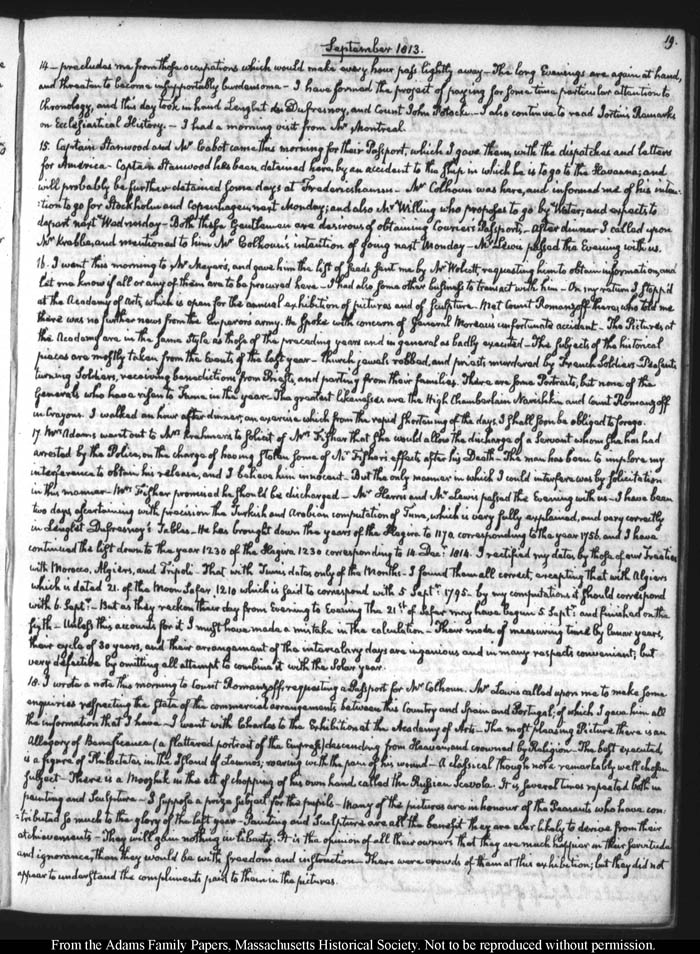 19.
September 1813.
14 — precludes me from those occupations which would make every hour pass lightly away — The long Evenings are again at hand,
and threaten to become insupportably burdensome — I have formed the project of paying for some time particular attention to
Chronology, and this day took in hand Lenglet du Dufresnoy, and Count John Potocki — I also continue to read Jortin's Remarks
on Ecclesiastical History. — I had a morning visit from Mr. Montreal.
15. Captain Stanwood and Mr. Cabot came this morning for their Passport, which I gave them, with the dispatches and letters
for America — Captain Stanwood has been detained here, by an accident to the Ship in which he is to go to the Havanna; and
will probably be further detained some days at Frederickshamn. — Mr. Colhoun was here, and informed me of his inten-
-tion to go for Stockholm and Copenhagen next Monday; and also Mr. Willing who proposes to go by Water; and expects to
depart next Wednesday — Both these Gentlemen are desirous of obtaining Courier's Passports, — After dinner I called upon
Mr. Krabbe, and mentioned to him Mr. Colhoun's intention of going next Monday — Mr. Lewis passed the Evening with us.
16. I went this morning to Mr. Meyers, and gave him the list of seeds sent me by Mr. Wolcott, requesting him to obtain information, and
let me know if all or any of them are to be procured here — I had also some other business to transact with him — On my return I stopp'd
at the Academy of Arts, which is open for the annual exhibition of pictures and of sculpture. Met Count Romanzoff there; who told me
there was no further news from the Emperor's army. He spoke with concern of General Moreau's unfortunate accident — The Pictures at
the Academy are in the same style as those of the preceding years and in general as badly executed — The subjects of the historical
pieces are mostly taken from the Events of the last year — Church jewels robbed, and priests murdered by French Soldiers — Peasants
turning Soldiers, receiving benedictions from Priests, and parting from their families. There are some Portraits, but none of the
Generals who have risen to Fame in the year. The greatest likenesses are the High Chamberlain Narishkin and Count Romanzoff
in Crayons. I walked an hour after dinner; an exercise which from the rapid shortening of the days, I shall soon be obliged to forego.
17. Mrs. Adams went out to Mrs. Krehmer's to solicit of Mrs. Fisher that she would allow the discharge of a Servant whom she has had
arrested by the Police, on the charge of having stolen some of Mr. Fisher's effects after his Death. The man has been to implore my
interference to obtain his release, and I believe him innocent. But the only manner in which I could interfere was by solicitation
in this manner — Mrs. Fisher promised he should be discharged. — Mr. Harris and Mr. Lewis passed the Evening with us — I have been
two days ascertaining with precision the Turkish and Arabian computation of Time, which is very fully explained, and very correctly
in Lenglet Dufresnoy's Tables — He has brought down the years of the Hegira to 1170 corresponding to the year 1756. and I have
continued the list down to the year 1230 of the Hegira 1230 corresponding to 14 Decr. 1814. I rectified my dates by those of our Treaties
with Morocco, Algiers, and Tripoli. That with Tunis dates only of the Months — I found them all correct, excepting that with Algiers
which is dated 21. of the Moon Safar, 1210 which is said to correspond with 5 Septr. 1795. — by my computations it should correspond
with 6. Septr. — But as they reckon their day from Evening to Evening The 21st of Safar may have begun 5 Septr. and finished on the
sixth — Unless this accounts for it I must have made a mistake in the calculation — Their mode of measuring time by lunar years,
their cycle of 30 years, and their arrangement of the intercalary days are ingenious and in many respects convenient; but
very defective by omitting all attempt to combine it with the Solar year.
18. I wrote a note this morning to Count Romanzoff, requesting a Passport for Mr. Colhoun. Mr. Lewis called upon me to make some
enquiries respecting the state of the commercial arrangements between this Country and Spain and Portugal; of which I gave him all
the information that I have — I went with Charles to the Exhibition at the Academy of Arts — The most pleasing Picture there is an
Allegory of Beneficence (a flattered portrait of the Empress) descending from Heaven, and crowned by Religion — The best executed
is a figure of Philoctetes, in the Island of Lemnos; roaring with the pain of his wound — A classical though not a remarkably well chosen
subject — There is a Moozhik in the act of chopping off his own hand, called the Russian Scevola. It is several times repeated both in
painting and Sculpture — I suppose a prize subject for the pupils — Many of the pictures are in honour of the Peasants who have con-
-tributed so much to the glory of the last year — Painting and Sculpture are all the benefit they are ever likely to derive from their
atchievements — They will gain nothing in liberty. It is the opinion of all their owners that they are much happier in their servitude
and ignorance, than they would be with freedom and instruction — There were crowds of them at this exhibition; but they did not
appear to understand the compliments paid to them in the pictures.
From the Adams Family Papers, Massachusetts Historical Society. Not to be reproduced without permission.